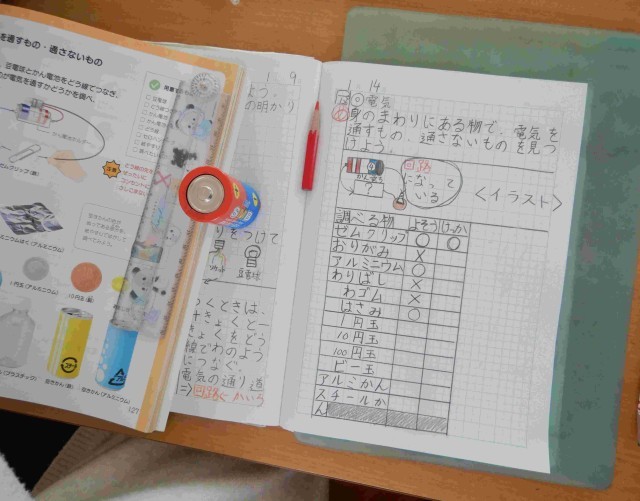 を通すもの・通さないもの
豆電球とかん電池をどう線でつなぎ、
が電気を通すかどうかを調べ、
ゼムクリップ(鉄)
ミニウムはく(アルミニウム)
1円玉(アルミニウム)
10円玉(銅)
(プラスチック)
空きかん(鉄)
空きかん(アルミニウム)
127
1 9
よう。
の明かり
りをつけて
豆電球
つくときは、
きょくをどう
線でわのよう
につなぐ。
電気の通り道
⇒回路
1 14
◎電気
身のまわりにある物で、電気を
通すもの、通さないものを見つ
けよう。
かん電池
?
回路
になって
いる
<イラスト>
調べる物 よそう けっか
ゼムクリップ ○ ○
おりがみ ×
アルミニウム ○
わりばし ×
わゴム ×
はさみ ○
一円玉
10円玉
100円玉
ビー玉
アルミかん
スチールか
ん